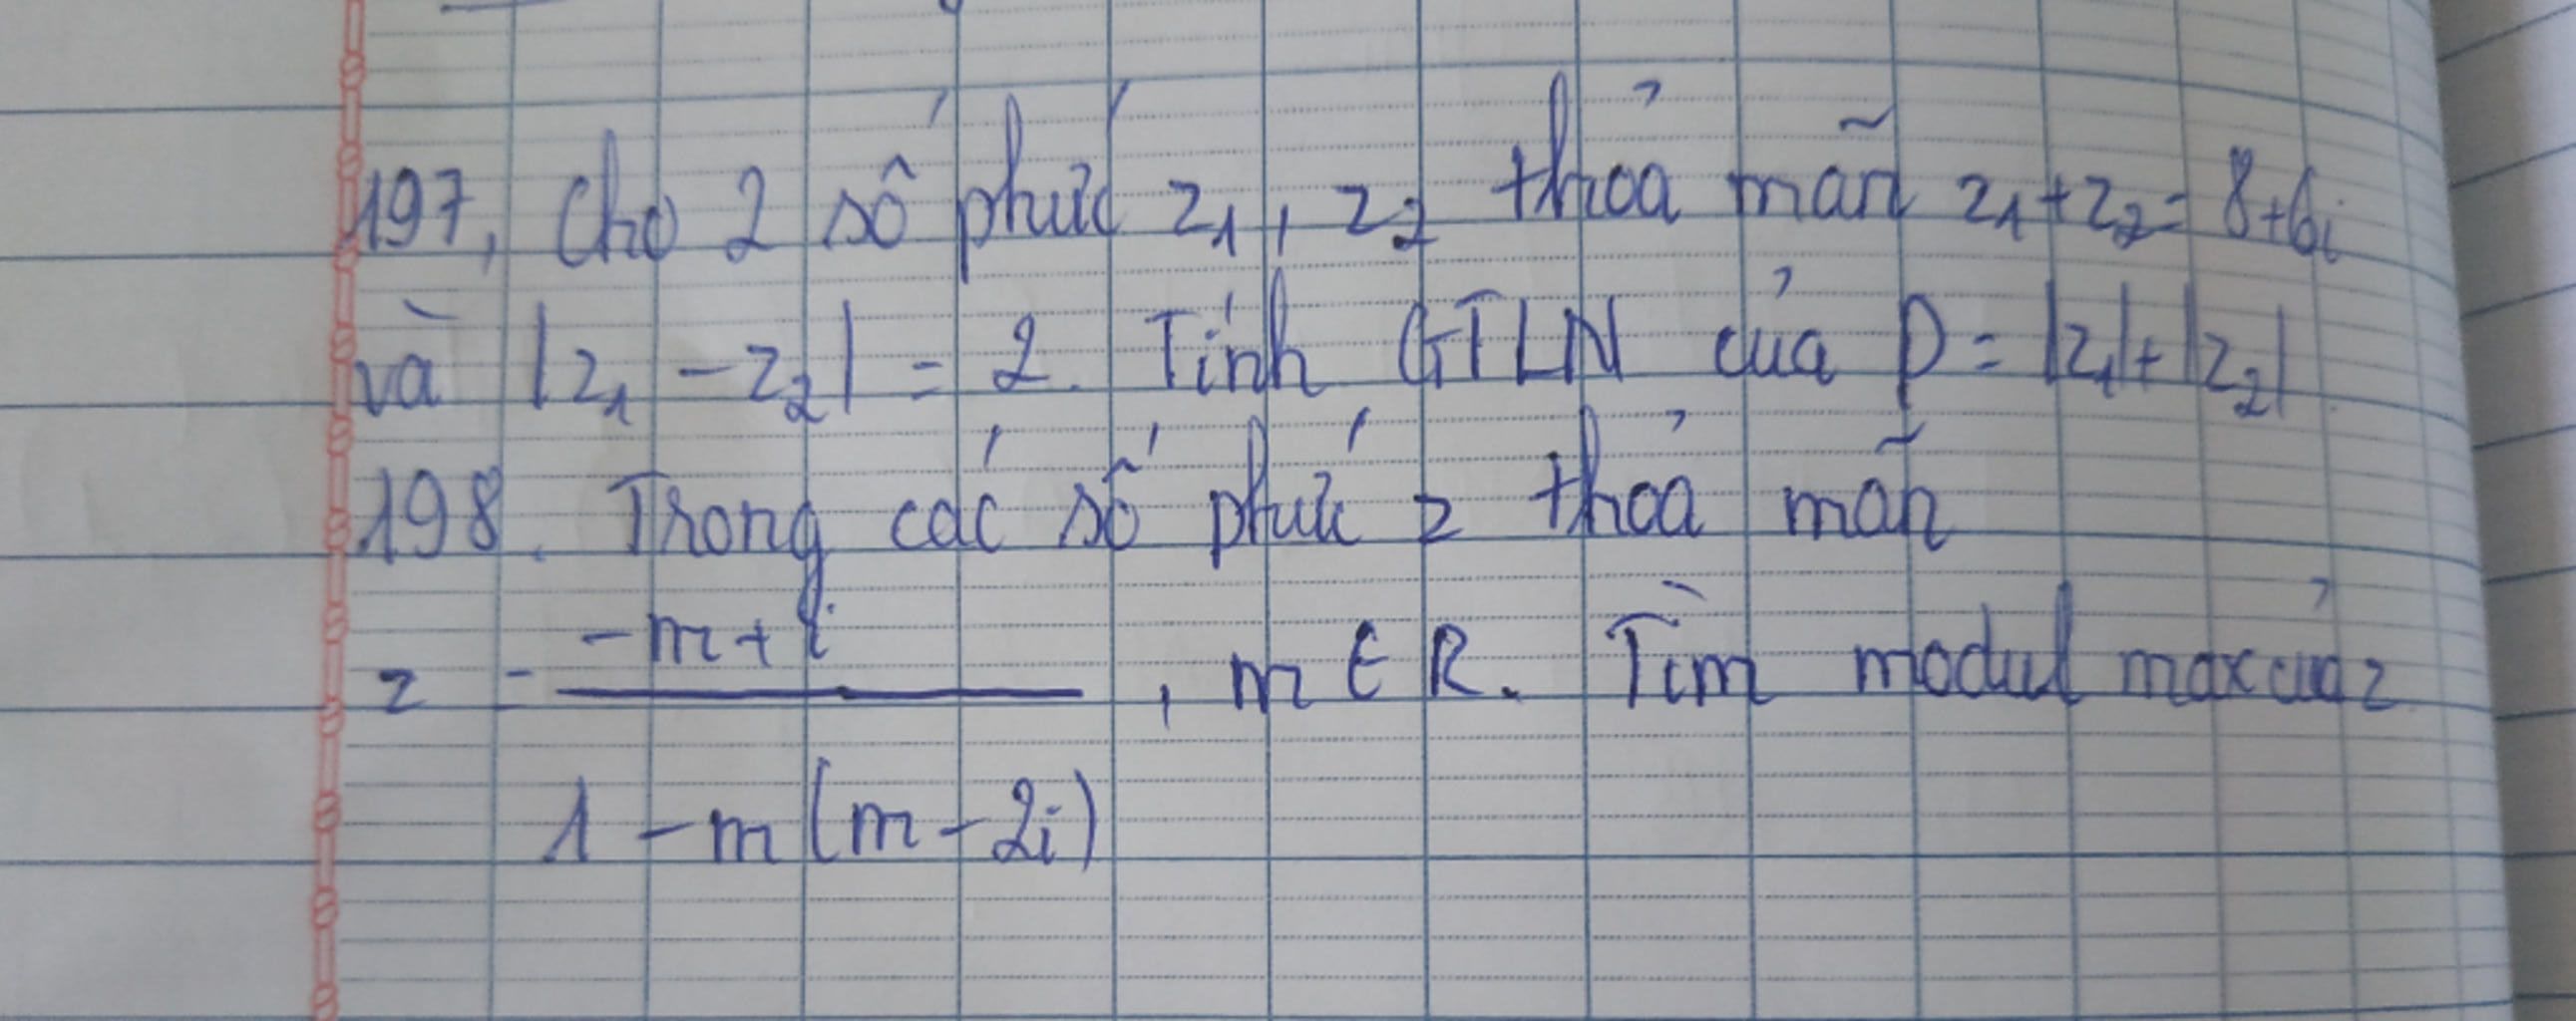 197, Cho 2 số phức z₁, z₂ thỏa mãn z₁+z₂= 8+6i
và |z₁ - z₂| = 2. Tính GTLN của P = |z₁|+|z₂|
198. Trong các số phức z thỏa mãn
z = \frac{-m+i}{1-m(m-2i)}, m ∈ R. Tìm modul max của z